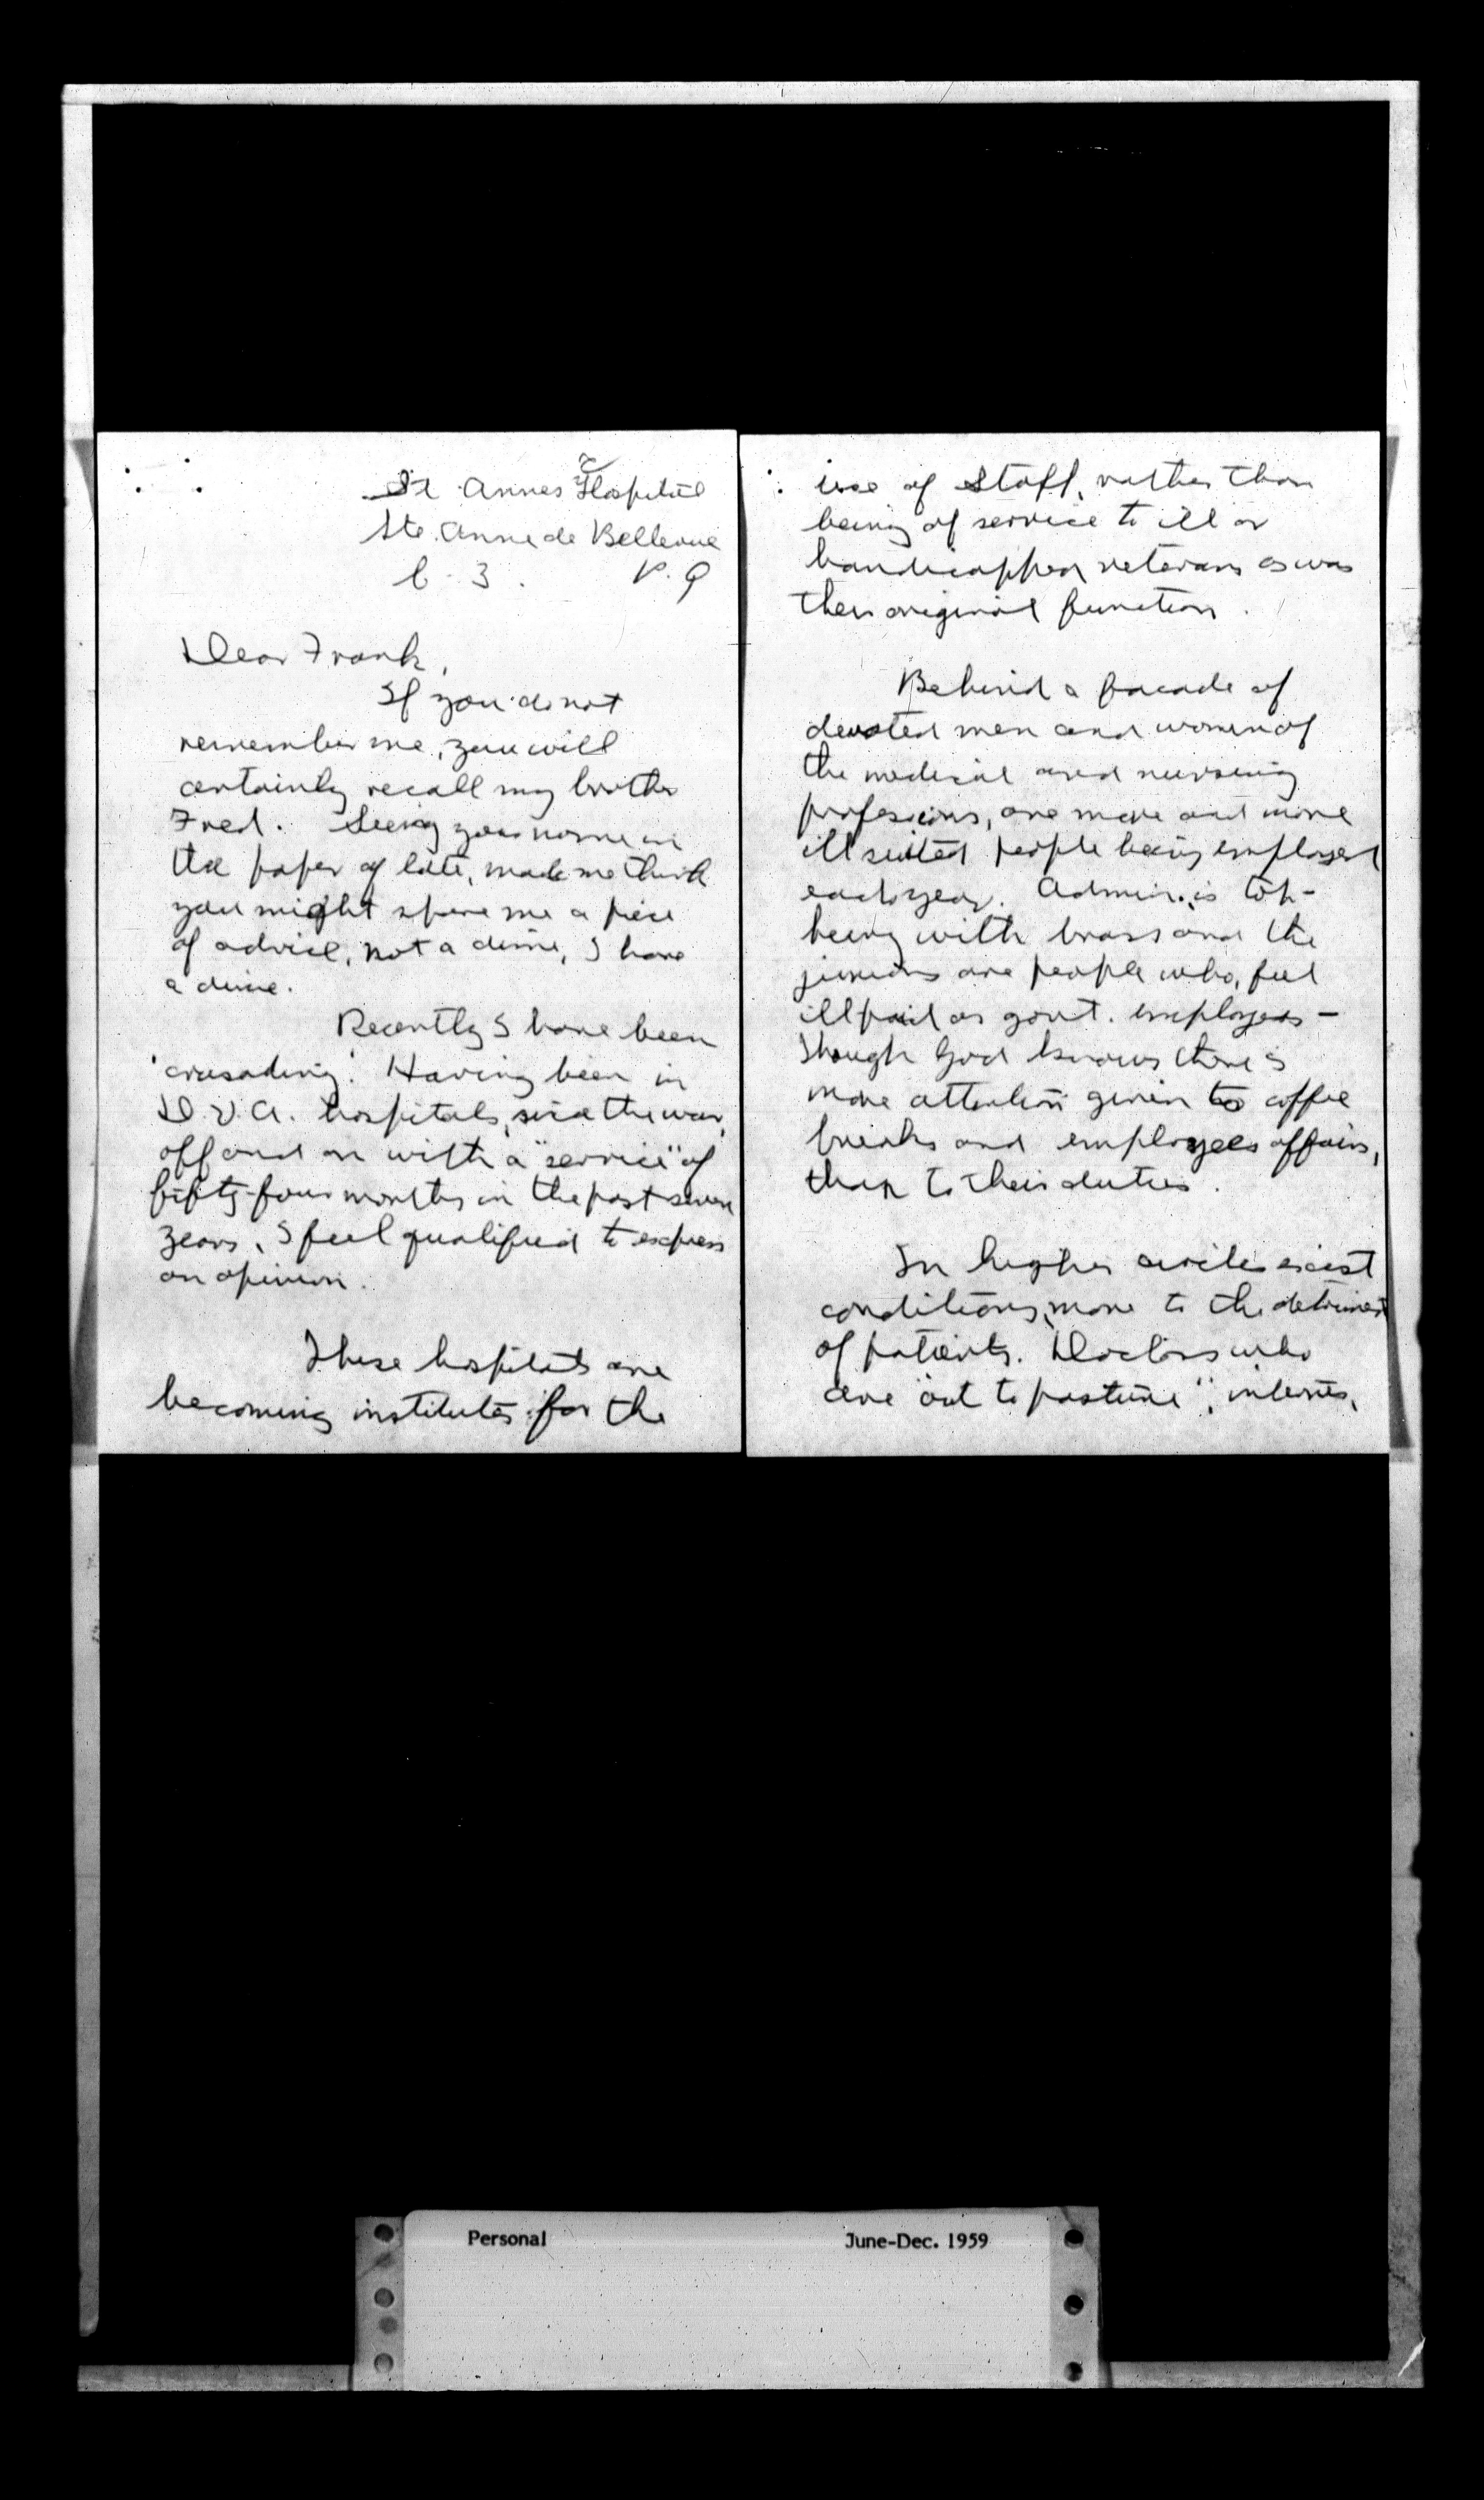 St. Annes Hospital
Ste. Anne de Bellevue
6-3. P.Q
Dear Frank,
If you do not
remember me, you will
certainly recall my brother
Fred. Seeing your name in
the paper of late, made me think
you might spare me a piece
of advice, not a dime, I have
a dime.
Recently I have been
'crusading'. Having been in
D.V.A. hospitals, since the war,
off and on with a "service" of
fifty-four months in the past seven
years, I feel qualified to express
an opinion.
These hospitals are
becoming institutes for the
use of Staff, rather than
being of service to ill or
handicapped veterans as was
their original function.
Behind a facade of
devoted men and women of
the medical and nursing
profesions, are more and more
ill suited people being employed
each year. Admin. is top-
heavy with brass and the
juniors are people who, feel
ill paid as govt. employees -
Though God knows there is
more attention given to coffee
breaks and employees affairs,
than to their duties.
In higher circles exist
conditions, more to the detriment
of patients. Doctors who
are "out to pasture", internes,
Personal June-Dec. 1959